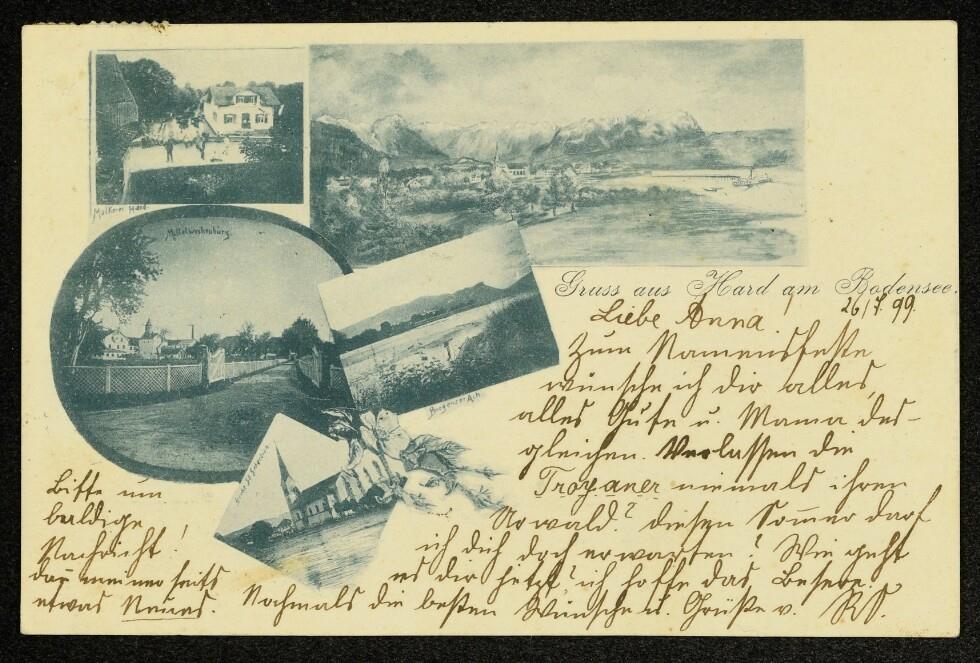 Molkerei Hard.
Mittelweiherburg
Bregenzer Ach
Gruss aus Hard am Bodensee.
26/7. 99.
Liebe Anna!
Zum Namensfeste
wünsche ich dir alles,
alles Gute u. Mama des-
gleichen. Verlassen die
Troyaner niemals ihren
Urwald? diesen Sommer darf
ich dich doch erwarten? Wie geht
es dir jetzt? ich hoffe das Besere.
Nochmals die besten Wünsche u. Grüße v. RS.
Bitte um
baldige
Nachricht!
meinerseits
etwas Neues.